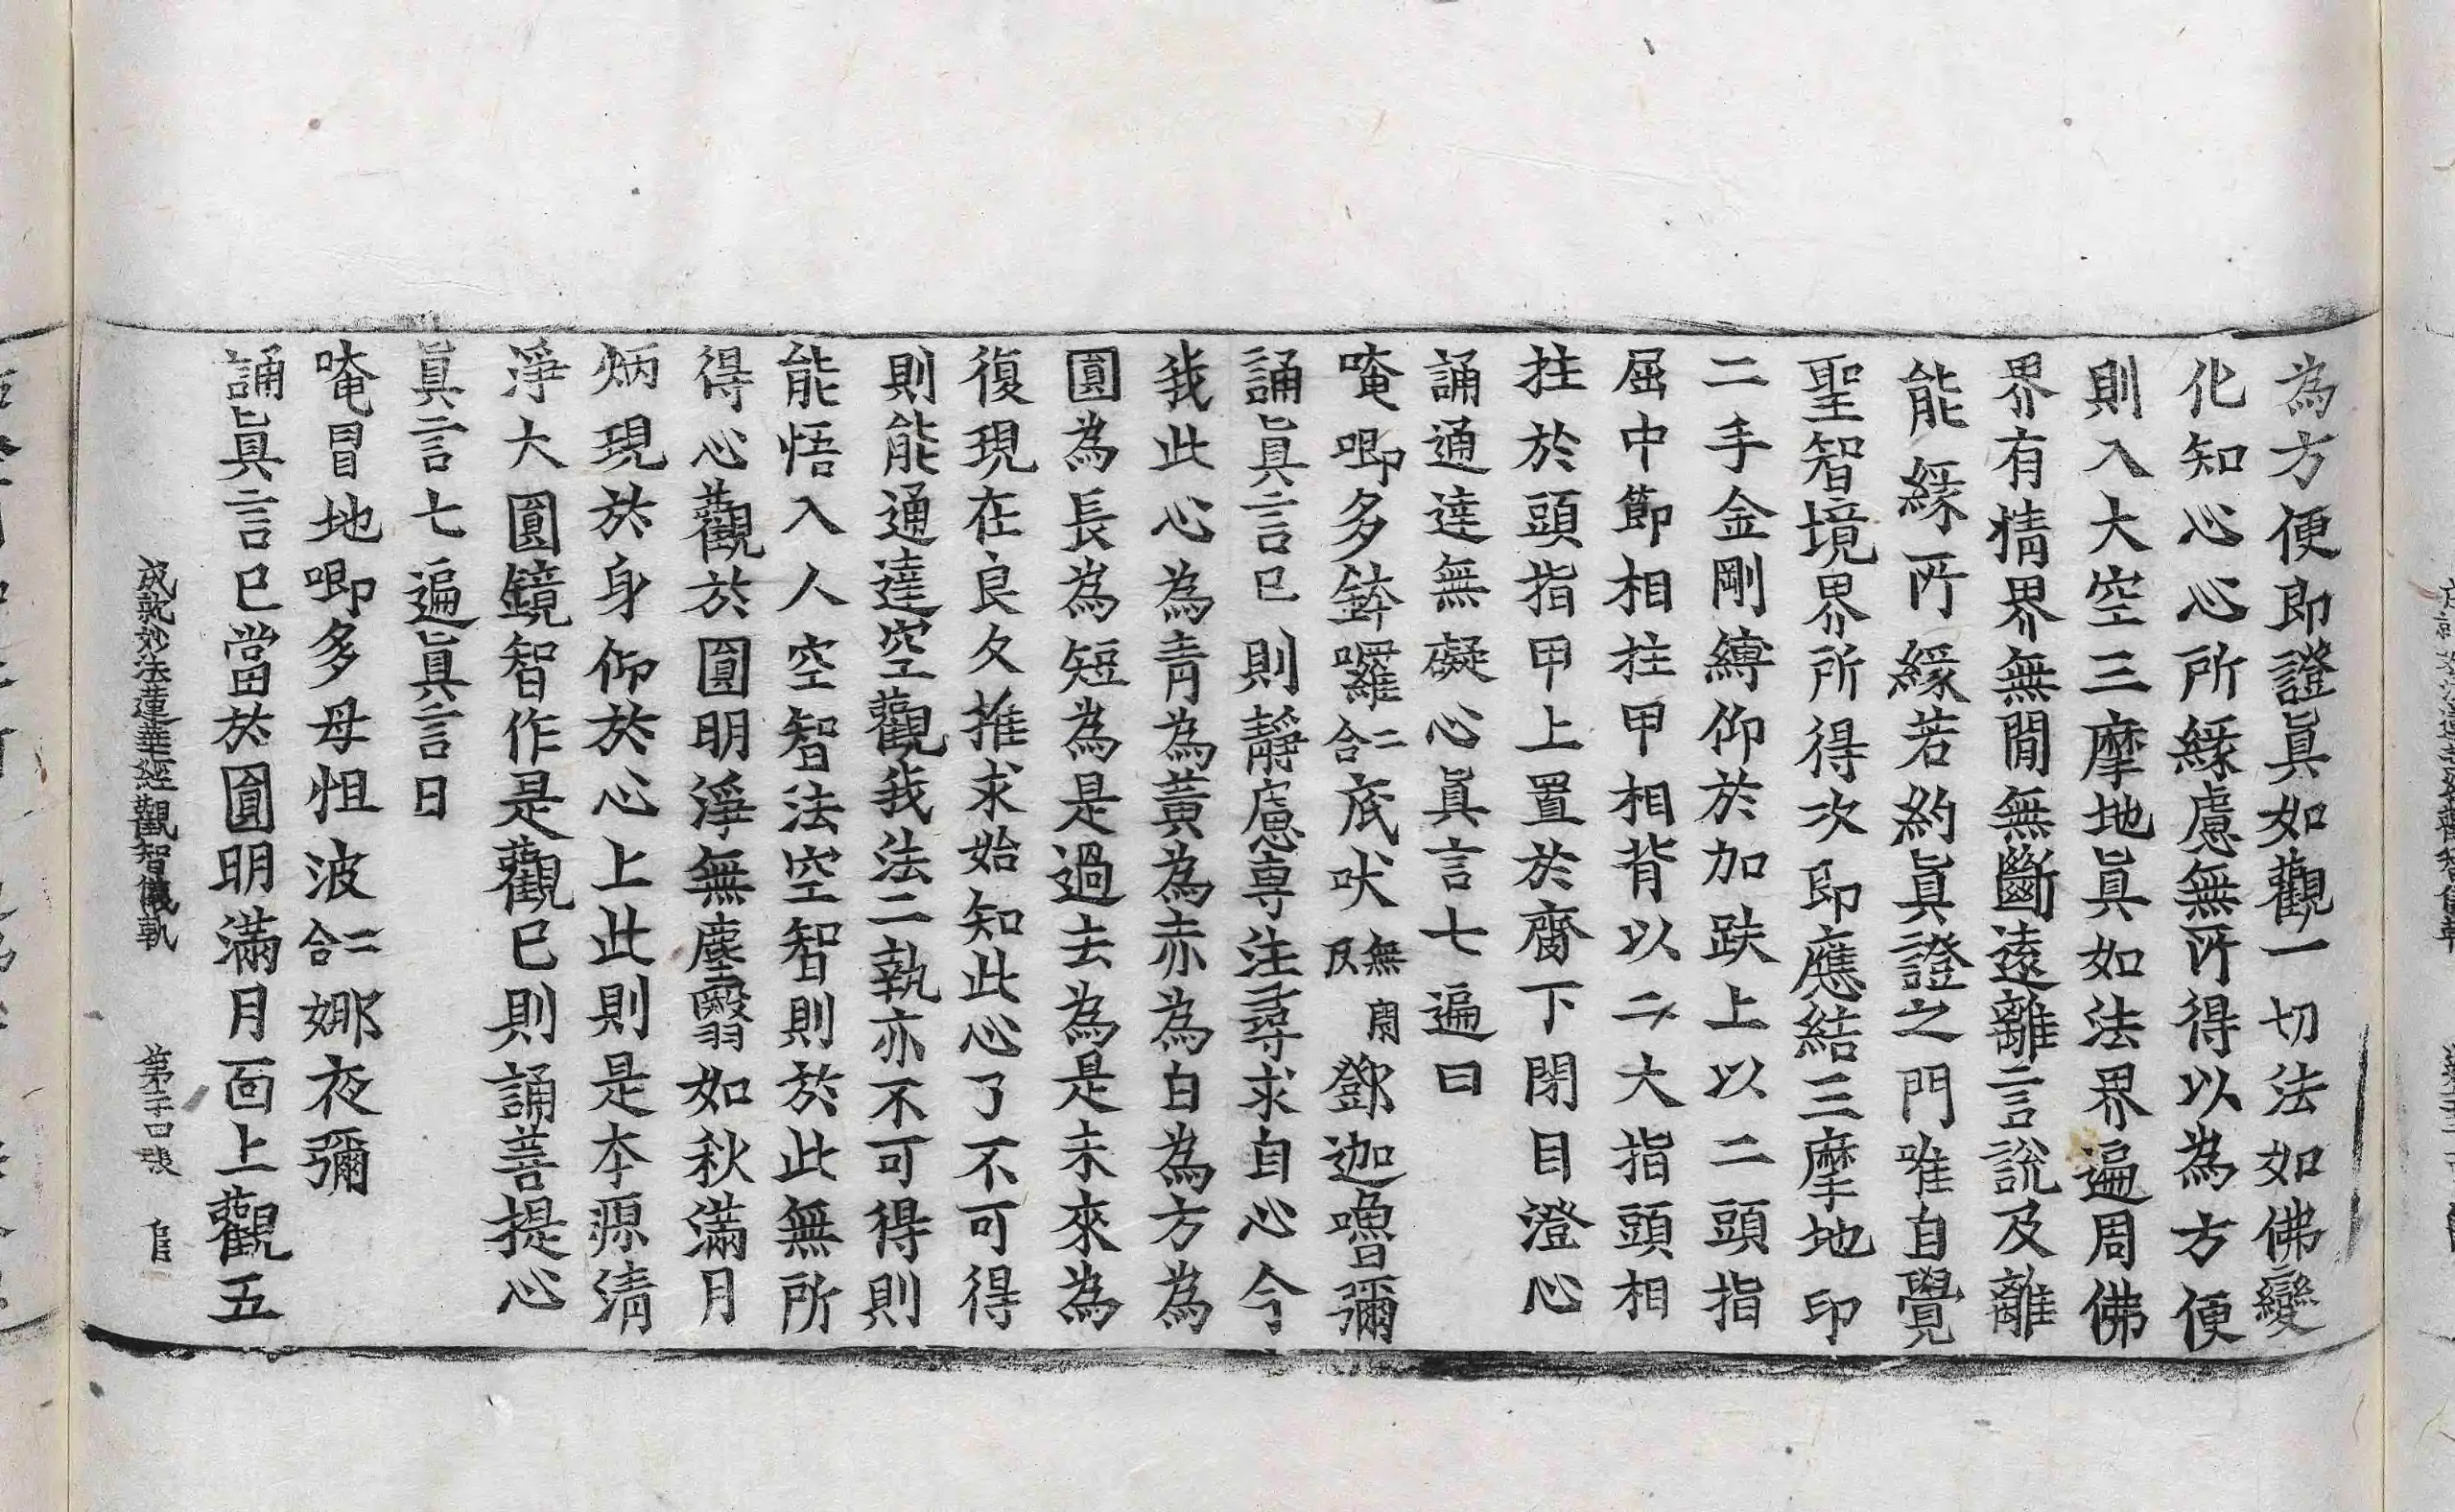 為方便即證眞如觀一切法如佛變
化知心心所緣慮無所得以為方便
則入大空三摩地眞如法界遍周佛
界有情界無間無斷遠離言說及離
能緣所緣若約眞證之門唯自覺
聖智境界所得次即應結三摩地印
二手金剛縛仰於加趺上以二頭指
屈中節相拄甲相背以二大指頭相
拄於頭指甲上置於齊下閉目澄心
誦通達無礙心眞言七遍曰
唵唧多鉢囉二合底吠無閉反鄧迦嚕彌
誦眞言已則靜慮專注尋求自心今
我此心為青為黃為赤為白為方為
圓為長為短為是過去為是未來為
復現在良久推求始知此心了不可得
則能通達空觀我法二執亦不可得則
能悟入人空智法空智則於此無所
得心觀於圓明淨無塵翳如秋滿月
炳現於身仰於心上此則是本源清
淨大圓鏡智作是觀已則誦菩提心
眞言七遍眞言曰
唵冒地唧多母怛波二合娜夜彌
誦眞言已當於圓明滿月面上觀五
成就妙法蓮華經觀智儀軌 第二十四張